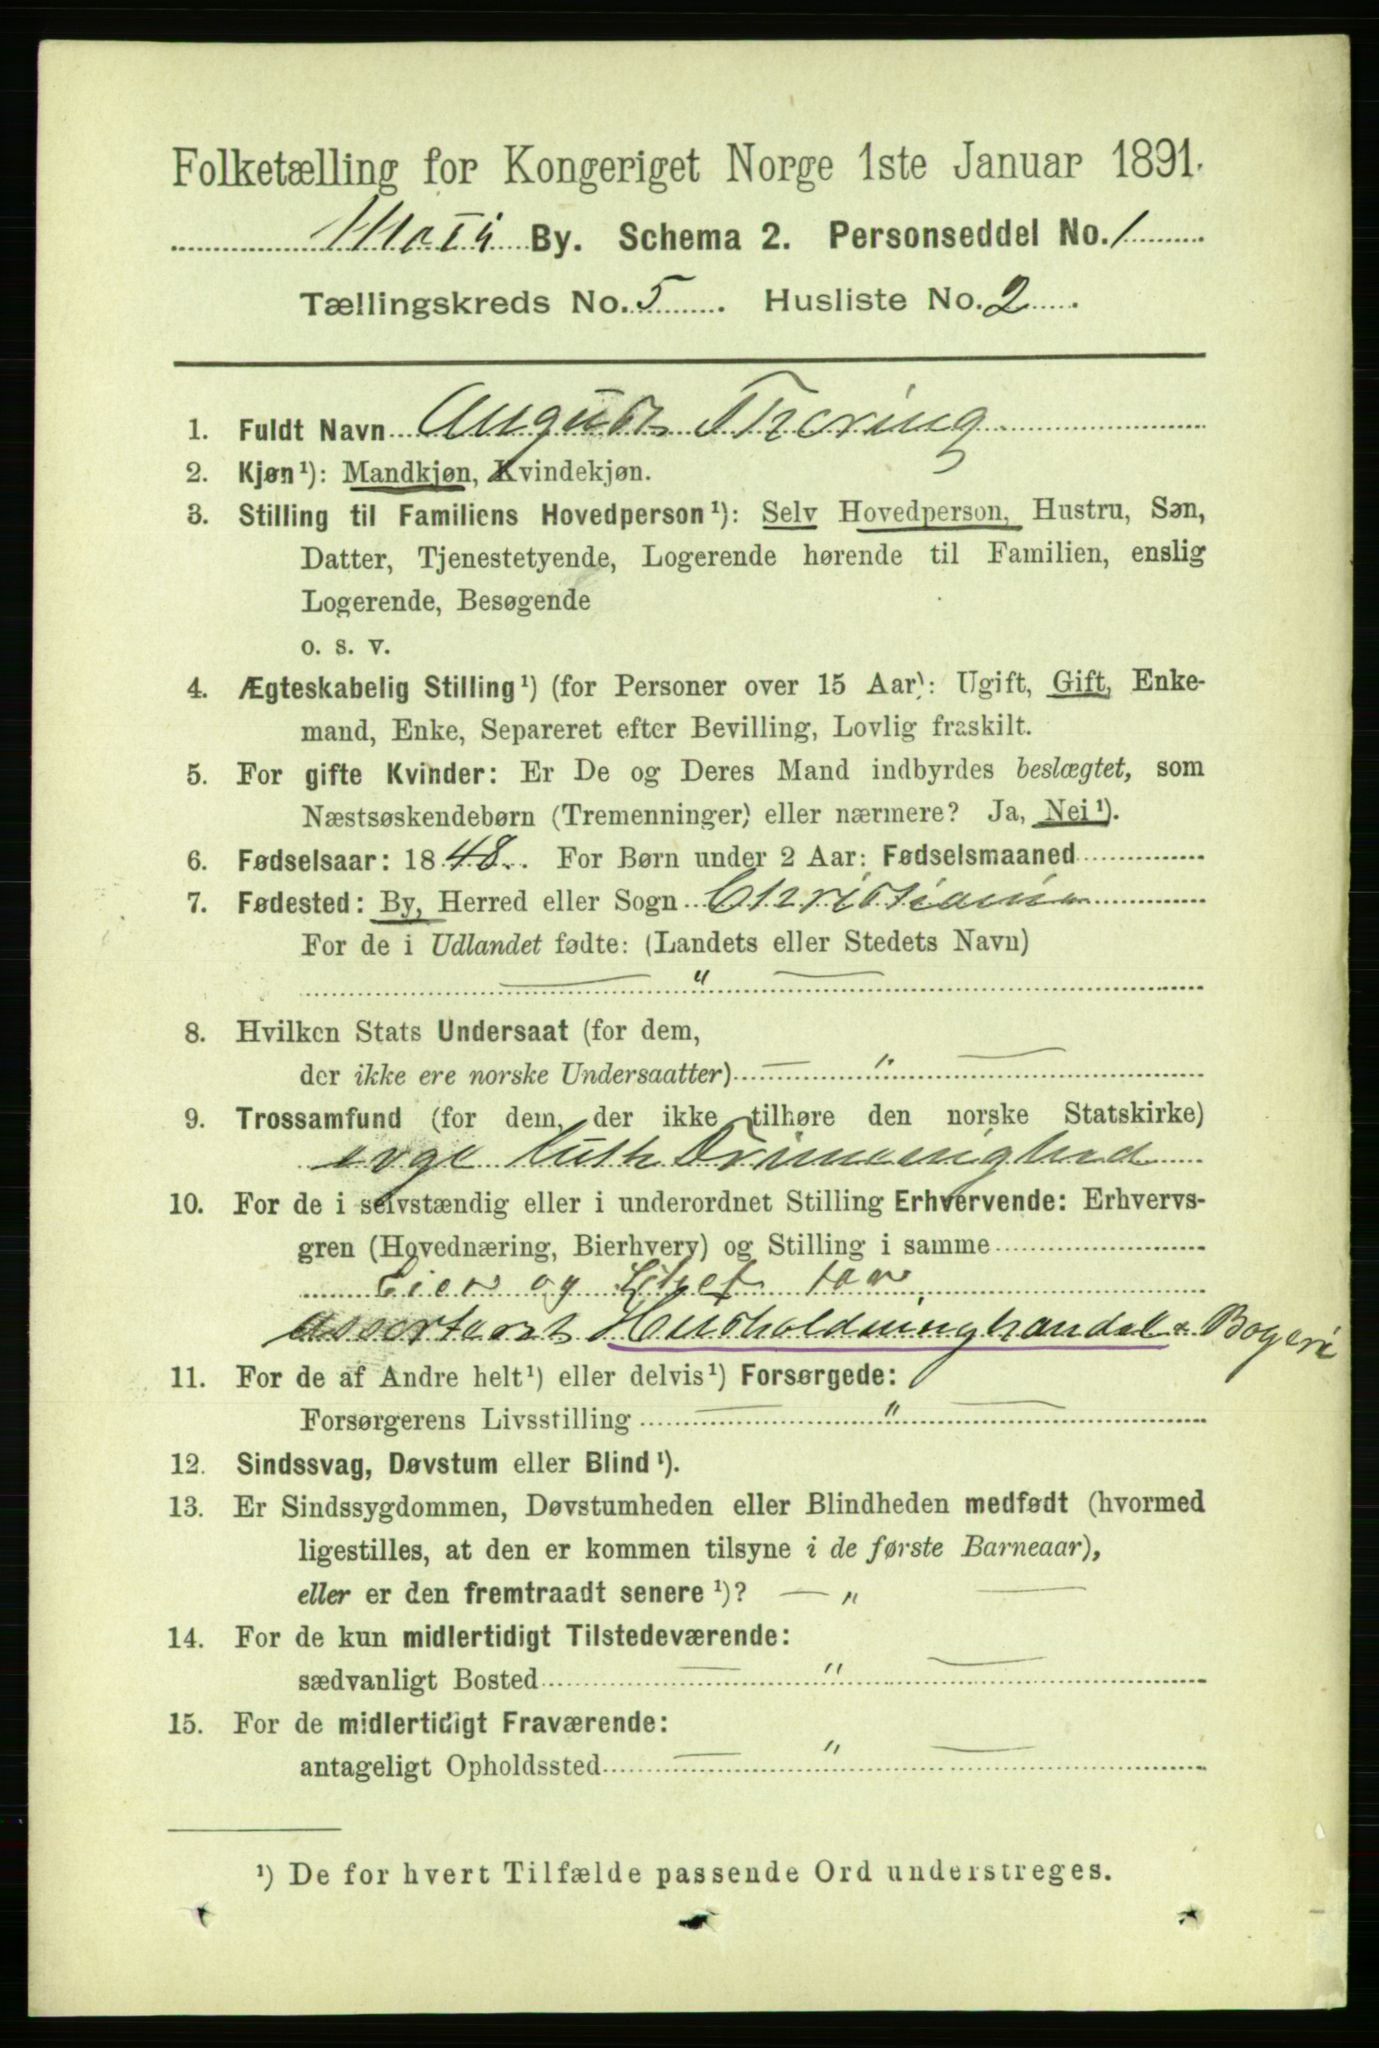 Folketælling for Kongeriget Norge 1ste Januar 1891.
Moss By. Schema 2. Personseddel No. 1
Tællingskreds No. 5. Husliste No. 2.
1. Fuldt Navn August Thoring
2. Kjøn¹): Mandkjøn, Kvindekjøn.
3. Stilling til Familiens Hovedperson¹): Selv Hovedperson, Hustru, Søn,
Datter, Tjenestetyende, Logerende hørende til Familien, enslig
Logerende, Besøgende
o. s. v.
4. Ægteskabelig Stilling¹) (for Personer over 15 Aar): Ugift, Gift, Enke-
mand, Enke, Separeret efter Bevilling, Lovlig fraskilt.
5. For gifte Kvinder: Er De og Deres Mand indbyrdes beslægtet, som
Næstsøskendebørn (Tremenninger) eller nærmere? Ja, Nei¹).
6. Fødselsaar: 1848. For Børn under 2 Aar: Fødselsmaaned
7. Fødested: By, Herred eller Sogn Christiania
For de i Udlandet fødte: (Landets eller Stedets Navn)
— " —
8. Hvilken Stats Undersaat (for dem,
der ikke ere norske Undersaatter) — " —
9. Trossamfund (for dem, der ikke tilhøre den norske Statskirke)
evgl Luth
10. For de i selvstændig eller i underordnet Stilling Erhvervende: Erhvervs-
gren (Hovednæring, Bierhverv) og Stilling i samme
Eier og for
assorteret Husholdninghandel & Bageri
11. For de af Andre helt¹) eller delvis¹) Forsørgede:
Forsørgerens Livsstilling — " —
12. Sindssvag, Døvstum eller Blind¹).
13. Er Sindssygdommen, Døvstumheden eller Blindheden medfødt (hvormed
ligestilles, at den er kommen tilsyne i de første Barneaar),
eller er den fremtraadt senere¹)? — " —
14. For de kun midlertidigt Tilstedeværende:
sædvanligt Bosted — " —
15. For de midlertidigt Fraværende:
antageligt Opholdssted — " —
¹) De for hvert Tilfælde passende Ord understreges.